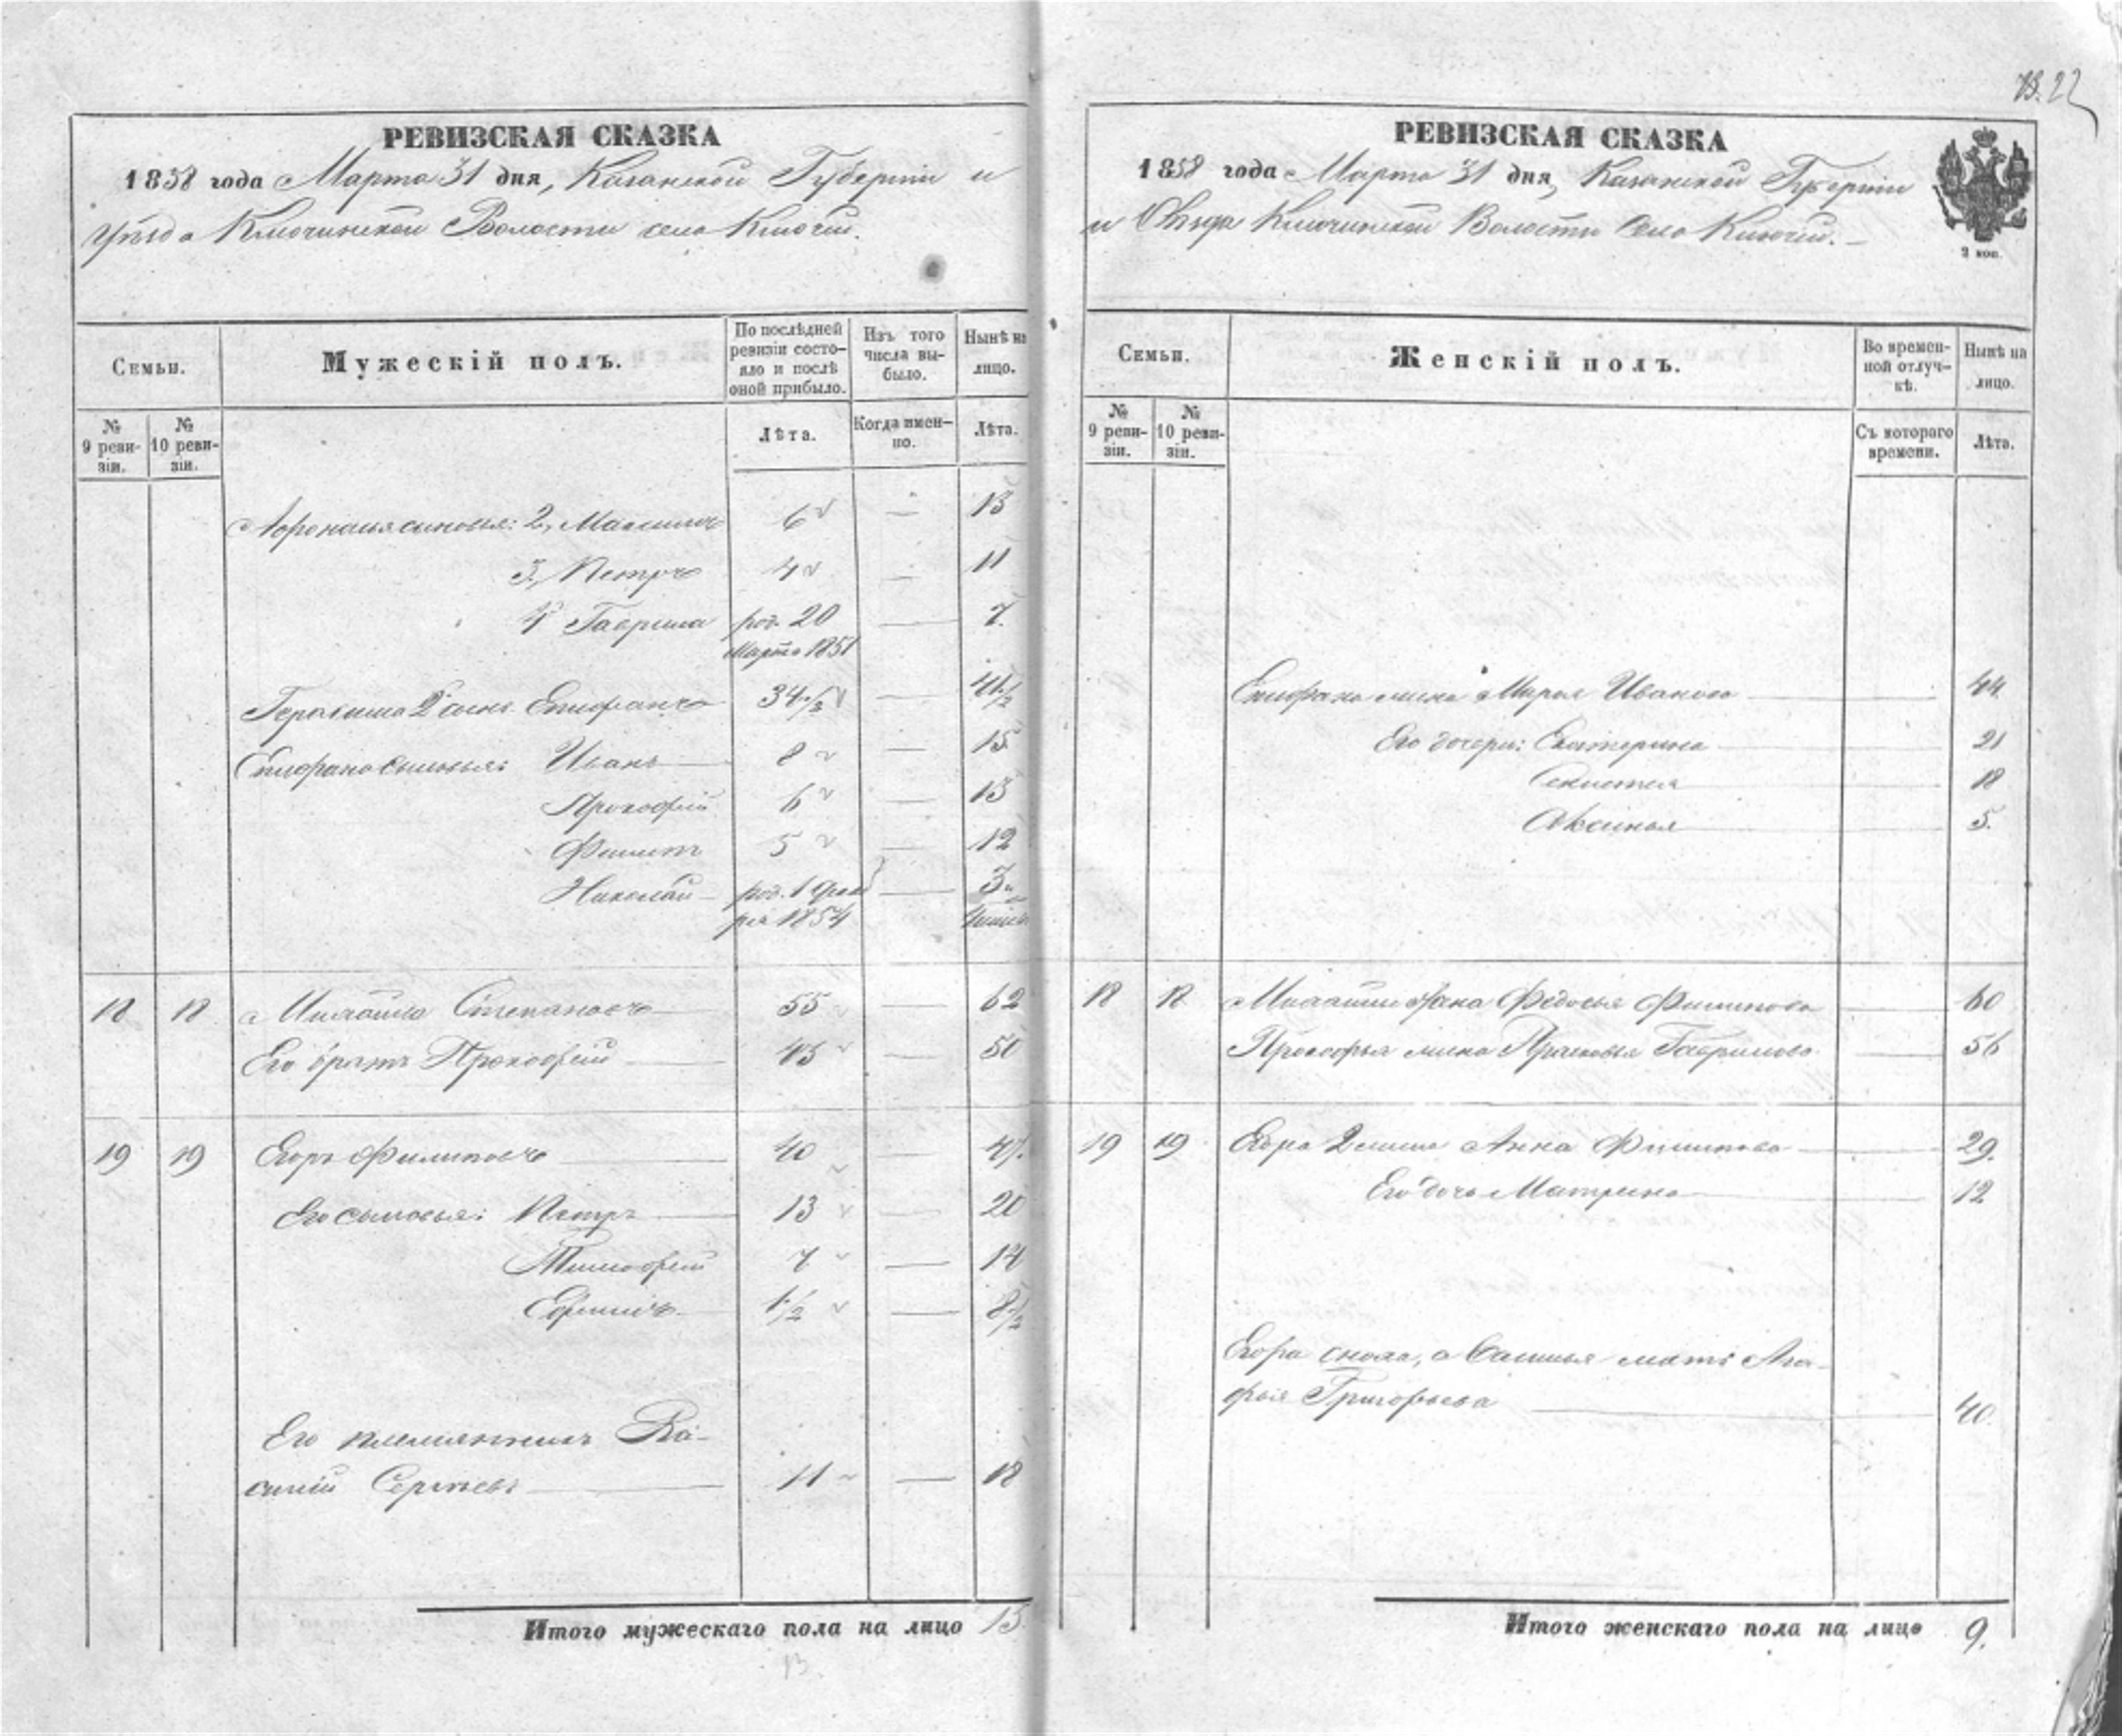 РЕВИЗСКАЯ СКАЗКА
1858 года Марта 31 дня, Казанской Губерніи и
уѣзда Ключинской Волости село Ключи.
Семьи.
Мужескій полъ.
По послѣдней ревизіи состо-
яло и послѣ
оной прибыло.
Изъ того
числа вы-
было.
Нынѣ на
лицо.
№
9 реви-
зіи.
№
10 реви-
зіи.
Лѣта.
Когда имен-
но.
Лѣта.
сыновья: 2, Максимъ 6 — 13
3, Петръ 4 — 11
4 Гаврила род. 20 — 7.
Марта 1851
Герасима 2 сынъ Епифанъ 34 1/2 — 41 1/2
Епифана сыновья: Иванъ 8 — 15
Прокофій 6 — 13
Филипъ 5 — 12
Николай род. 1 — 3
ря 1854
18 18 Михайло Степановъ 55 — 62
Его братъ Прокофій 43 — 50
19 19 Егоръ Филиповъ 40 47.
Его сыновья: Петръ 13 — 20
Тимофей 7 — 14
Ефимъ 1 1/2 — 8 1/2
Его племянникъ Ва-
силій Сергѣевъ 11 — 18
Итого мужескаго пола на лицо 13.
13
22
РЕВИЗСКАЯ СКАЗКА
1858 года Марта 31 дня, Казанской Губерніи
и Уѣзда Ключинской Волости село Ключи.
2 коп.
Семьи.
Женскій полъ.
Во времен-
ной отлуч-
кѣ.
Нынѣ на
лицо.
№
9 реви-
зіи.
№
10 реви-
зіи.
Съ котораго
времени.
Лѣта.
Епифана жена Марья Иванова — 44
Его дочери: Екатерина 21
18
Аксинья 5.
18 18 Михайлы жена Федосья Филипова — 60
Прокофья жена Прасковья Гаврилова — 56
19 19 Егора 2 жена Анна Филипова — 29.
Его дочь Матрена 12
Егора сноха, а Василья мать Ага-
фья Григорьева — 40.
Итого женскаго пола на лицо 9.